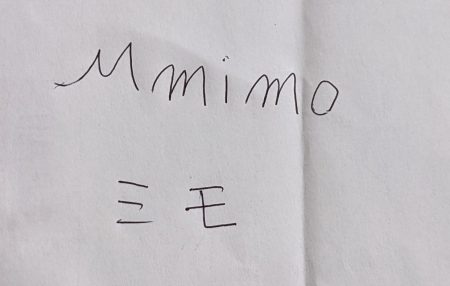 Mmimo
ミモ